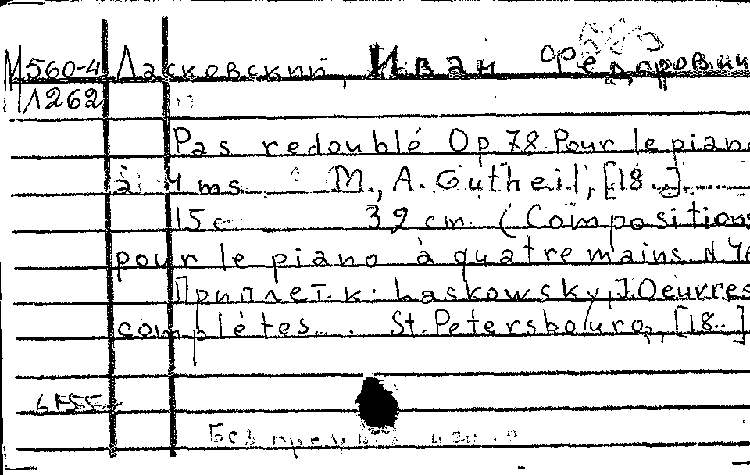 М560-4 Ласковский, Иван Федорович
Л262
Pas redoublé Op 78 Pour le piano
à 4 ms M., A. Gutheil, [18..].
15 c 32 cm. (Compositions
pour le piano à quatre mains. N
Приплет. к: Laskowsky, J. Oeuvres
complètes... St. Petersbourg, [18..]
Без